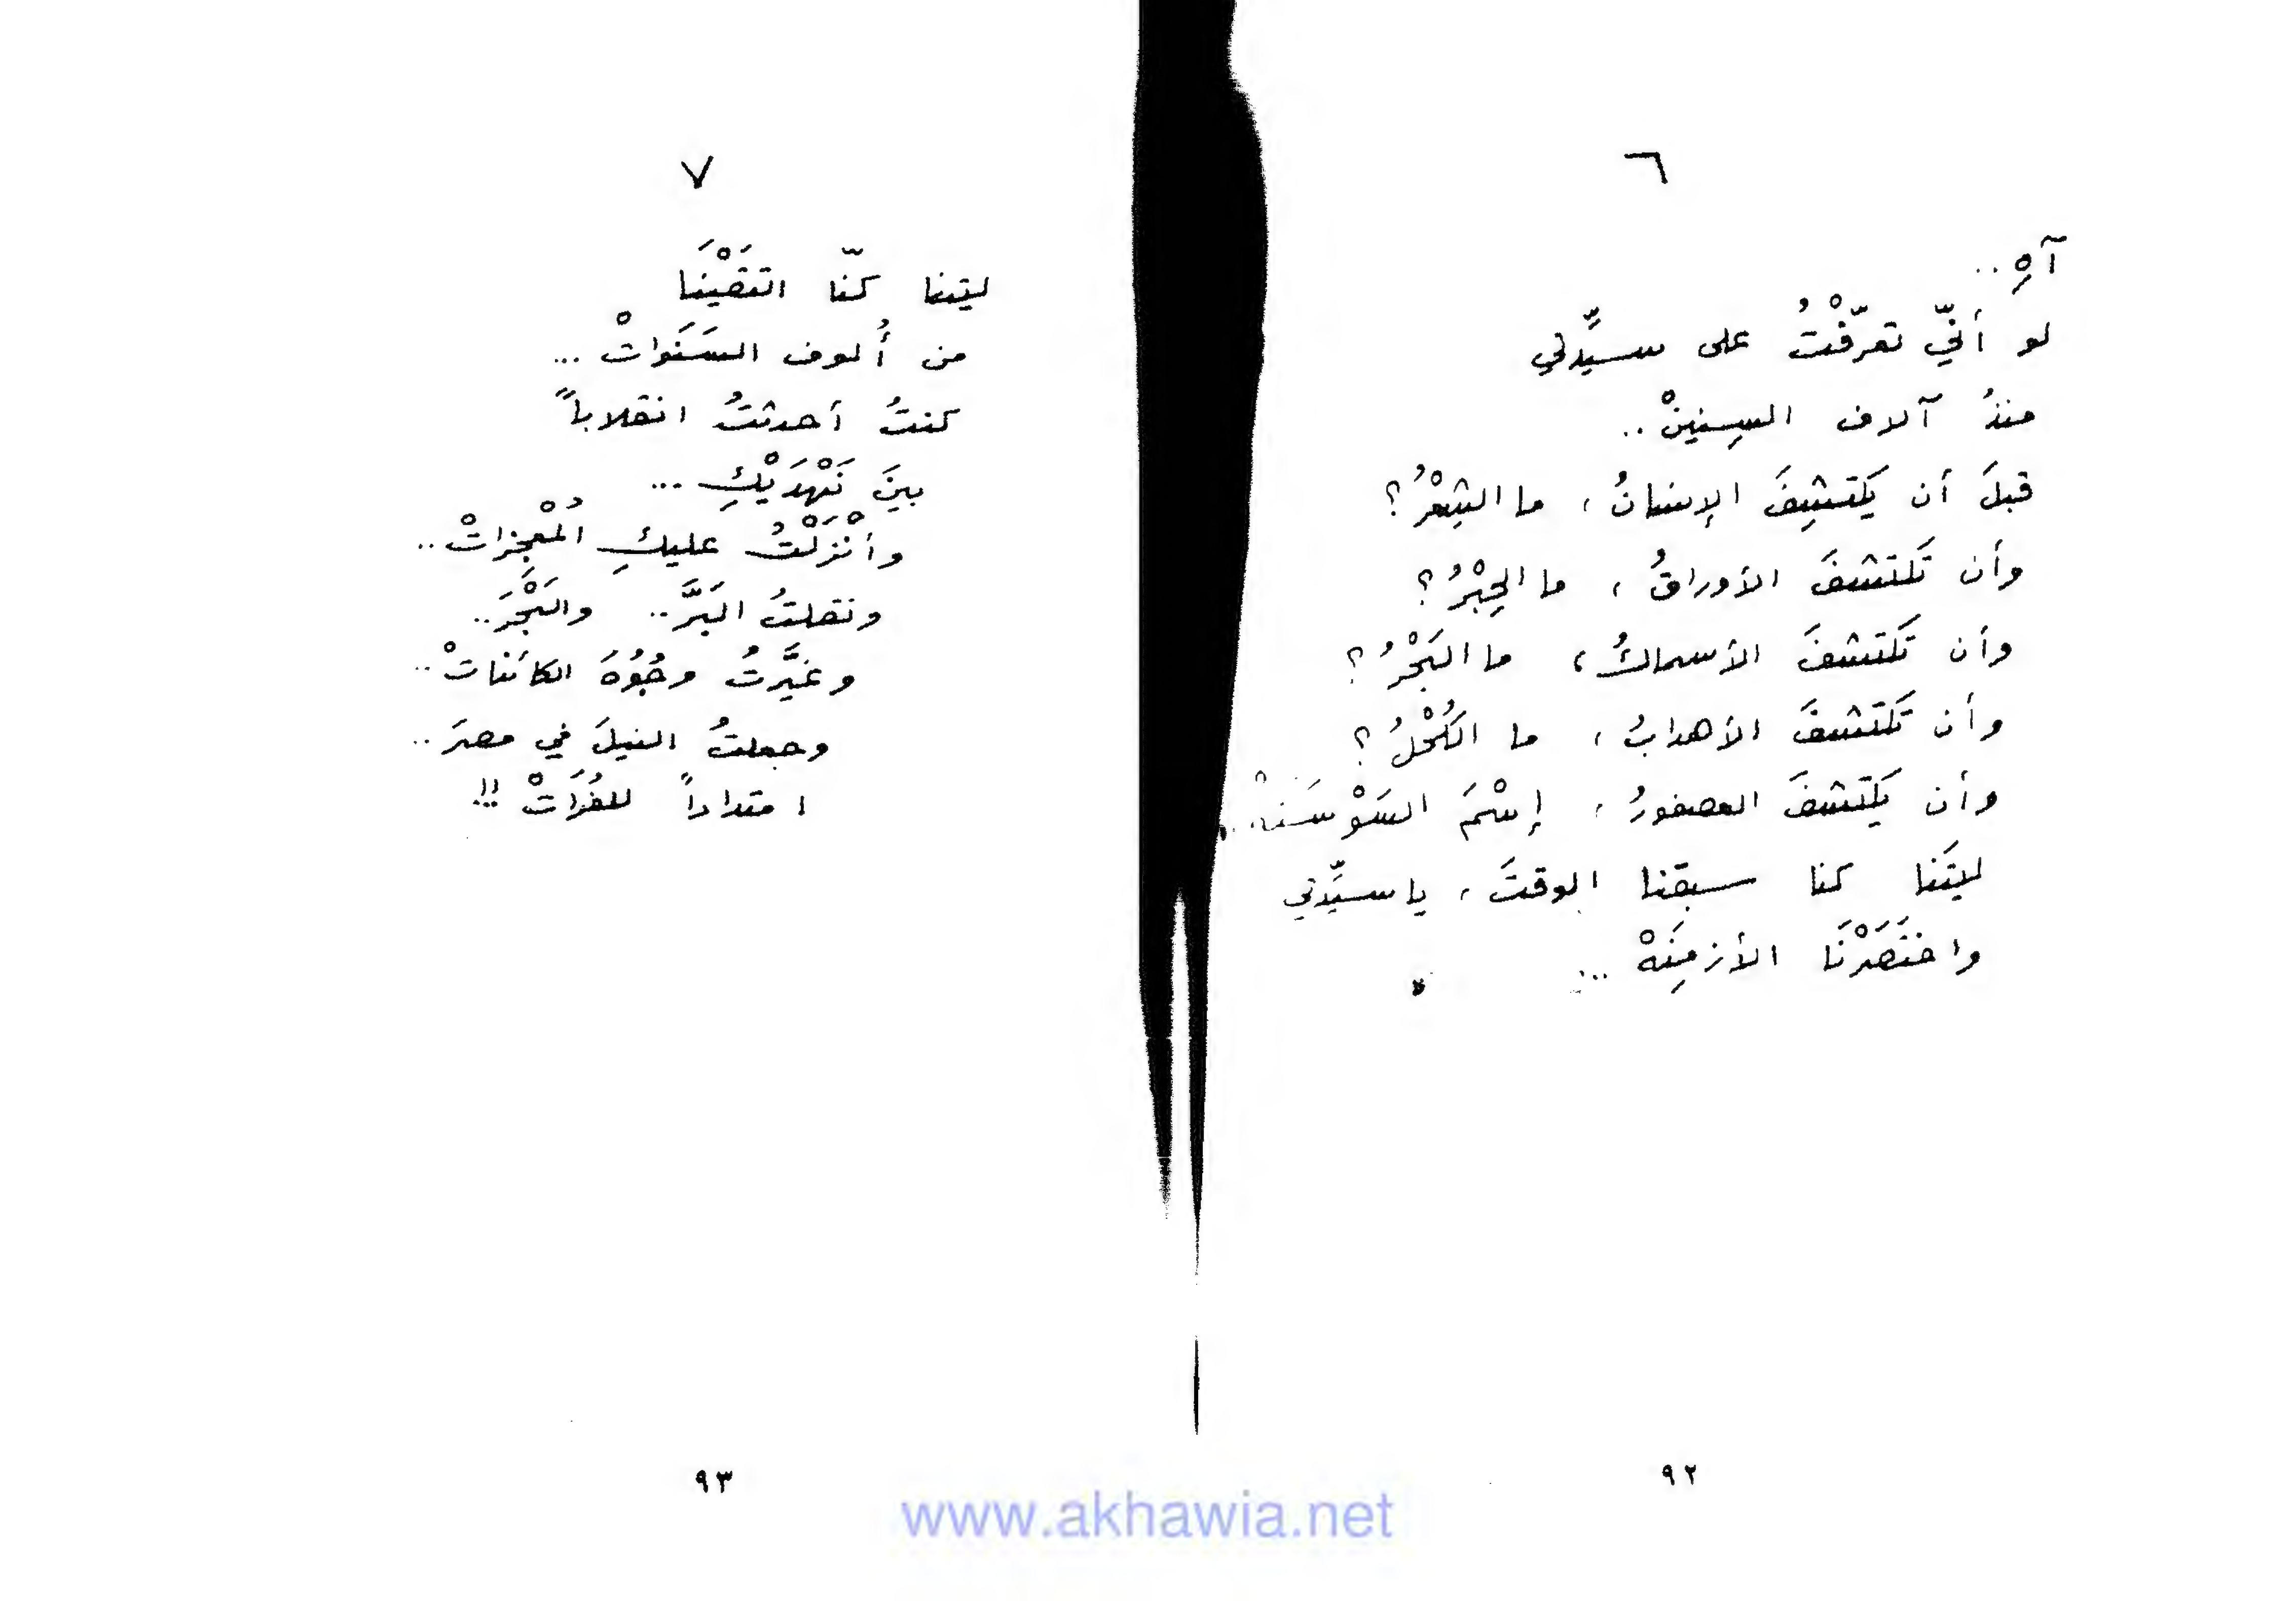 ٦
آهِ ..
لو أنّي تعرّفْتُ على سيِّدتي
منذُ آلاف السِنينْ ..
قبلَ أن يَكتشِفَ الإنسانُ ، ما الشِعْرُ ؟
وأن تَكتشفَ الأوراقُ ، ما الحِبْرُ ؟
وأن تَكتشفَ الأسماكُ ، ما البَحْرُ ؟
وأن تَكتشفَ الأهدابُ ، ما الكُحْلُ ؟
وأن يَكتشفَ العصفورُ ، إسْمَ السَوْسَنهْ ..
ليتَنا كنا سبقنا الوقتَ ، يا سيِّدتي
واختَصَرْنَا الأزمِنَهْ ...
٩٢
٧
ليتنا كنّا التقَيْنَا
من أُلوف السَنَواتْ ...
كنتُ أحدثتُ انقلاباً
بينَ نَهْدَيْكِ ...
وأنْزَلْتُ عليكِ المُعْجِزاتْ ..
ونقلتُ البَرَّ .. والبَحْرَ ..
وغيَّرتُ وُجُوُهَ الكائناتْ ..
وجعلتُ النيلَ في مصرَ ..
امتداداً للفُرَاتْ !!..
٩٣
www.akhawia.net